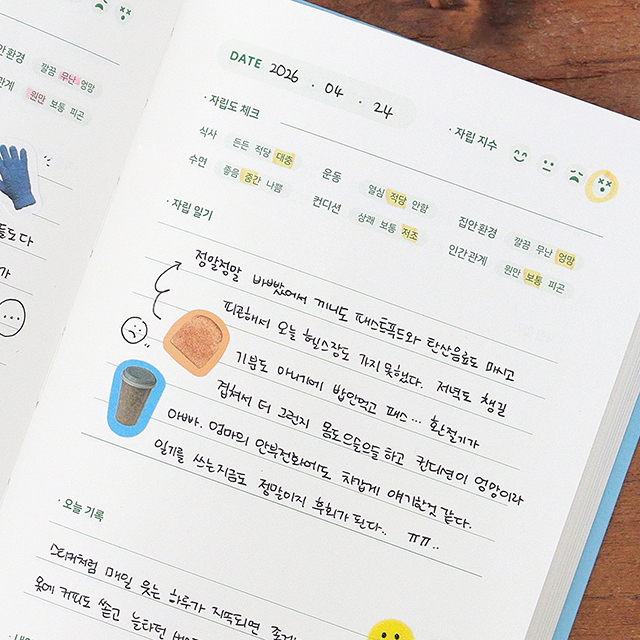 안환경 깔끔 무난 엉망
관계 원만 보통 피곤
들도 다
가
DATE 2026 . 04 . 24
· 자립도 체크
· 자립 지수
식사 든든 적당 대충
운동 열심 적당 안함
집안환경 깔끔 무난 엉망
수면 좋음 중간 나쁨
컨디션 상쾌 보통 저조
인간관계 원만 보통 피곤
· 자립 일기
정말정말 바빴어서 끼니도 패스트푸드와 탄산음료로 마시고
피곤해서 오늘 헬스장도 가지 못하였다. 저녁도 챙길
기분도 아니기에 밥안먹고 패스... 환절기가
겹쳐서 더 그런지 몸도으슬으슬하고 컨디션이 엉망이라
아빠. 엄마의 안부전화에도 차갑게 얘기한것 같다.
일기를 쓰는지금도 정말이지 후회가 된다.. ㅠㅠ..
· 오늘 기록
스티커처럼 매일 웃는 하루가 지속되면
옷에 커피도 쏟고 놀타던